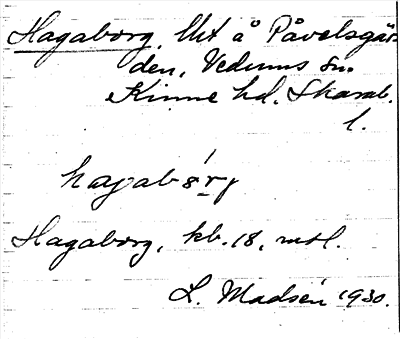 Hagaborg, lht å Påvelsgår-
den, Vedums sn.
Kinne hd. Skarab.
l.
hagabórj
Hagaborg, kb. 18, mtl.
L. Madsén 1930.